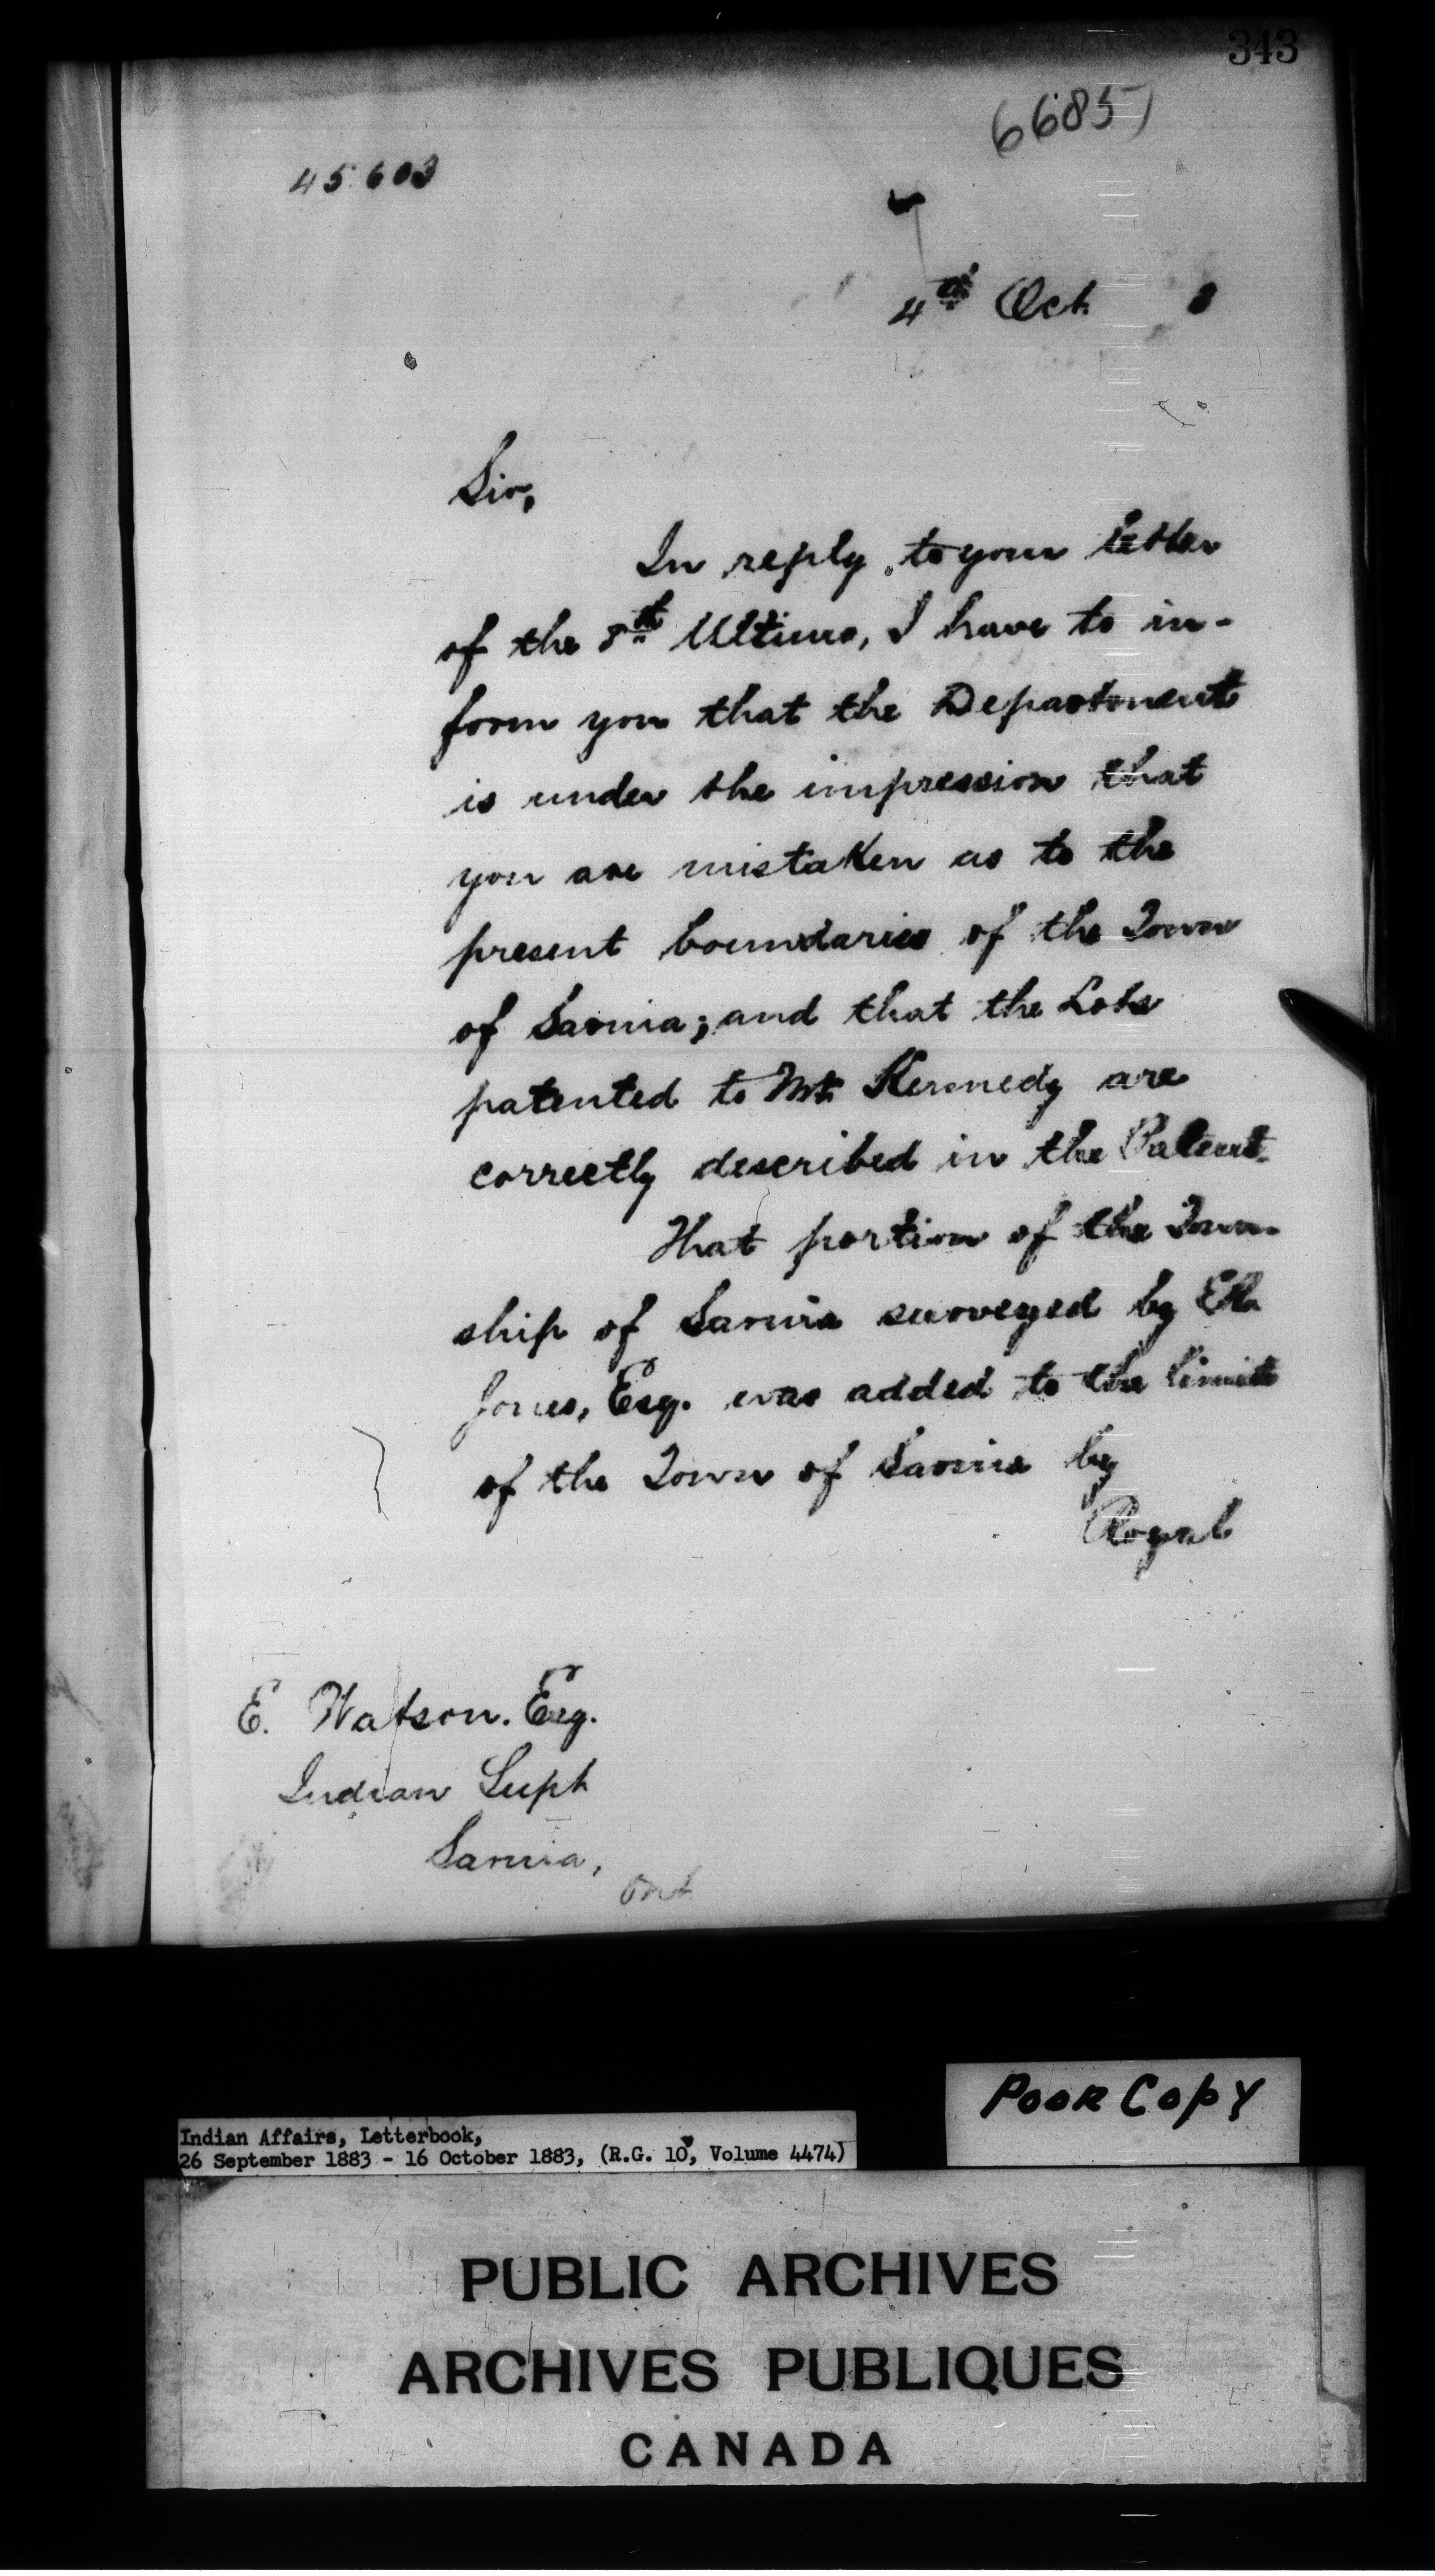 343
6685
45.603
4th Oct. 3
Sir,
In reply to your letter
of the 8th Ultimo, I have to in-
form you that the Department
is under the impression that
you are mistaken as to the
present boundaries of the Town
of Sarnia; and that the Lots
patented to Mr. Kennedy are
correctly described in the Patent.
That portion of the Town-
ship of Sarnia surveyed by
Jones, Esq. was added to the limits
of the Town of Sarnia by
Royal
E. Watson. Esq.
Indian Supt
Sarnia,
Ont
Poor Copy
Indian Affairs, Letterbook,
26 September 1883 - 16 October 1883, (R.G. 10, Volume 4474)
PUBLIC ARCHIVES
ARCHIVES PUBLIQUES
CANADA